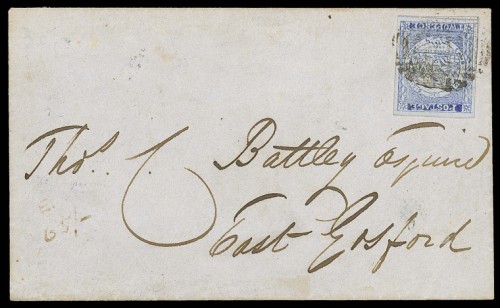 POSTAGE
TWOPENCE
Thos. C. Battley Esquire
East Gosford